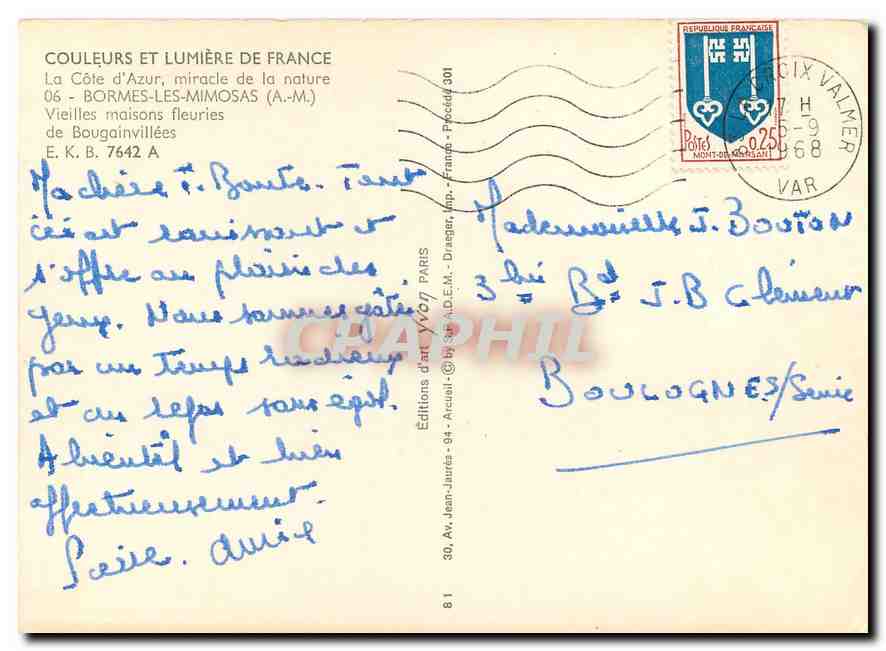 COULEURS ET LUMIÈRE DE FRANCE
La Côte d'Azur, miracle de la nature
06 - BORMES-LES-MIMOSAS (A.-M.)
Vieilles maisons fleuries
de Bougainvillées
E. K. B. 7642 A
Ma chère T. Tout
ici est ravissant et
s'offre au plaisir des
yeux. Nous sommes gâtés
par un temps radieux
et un repos sans égal.
A bientôt et bien
affectueusement.
81 30, Av. Jean-Jaurès - 94 - Arcueil - © by S.P.A.D.E.M. - Draeger, Imp. - France - Procédé 301
Éditions d'art yvon PARIS
REPUBLIQUE FRANÇAISE
POSTES 0,25
MONT-DE-MARSAN
CROIX VALMER
17 H
6-9
1968
VAR
Mademoiselle J. BOUTON
3 bis Bd J.B Clément
BOULOGNE s/Seine
CPAPHIL